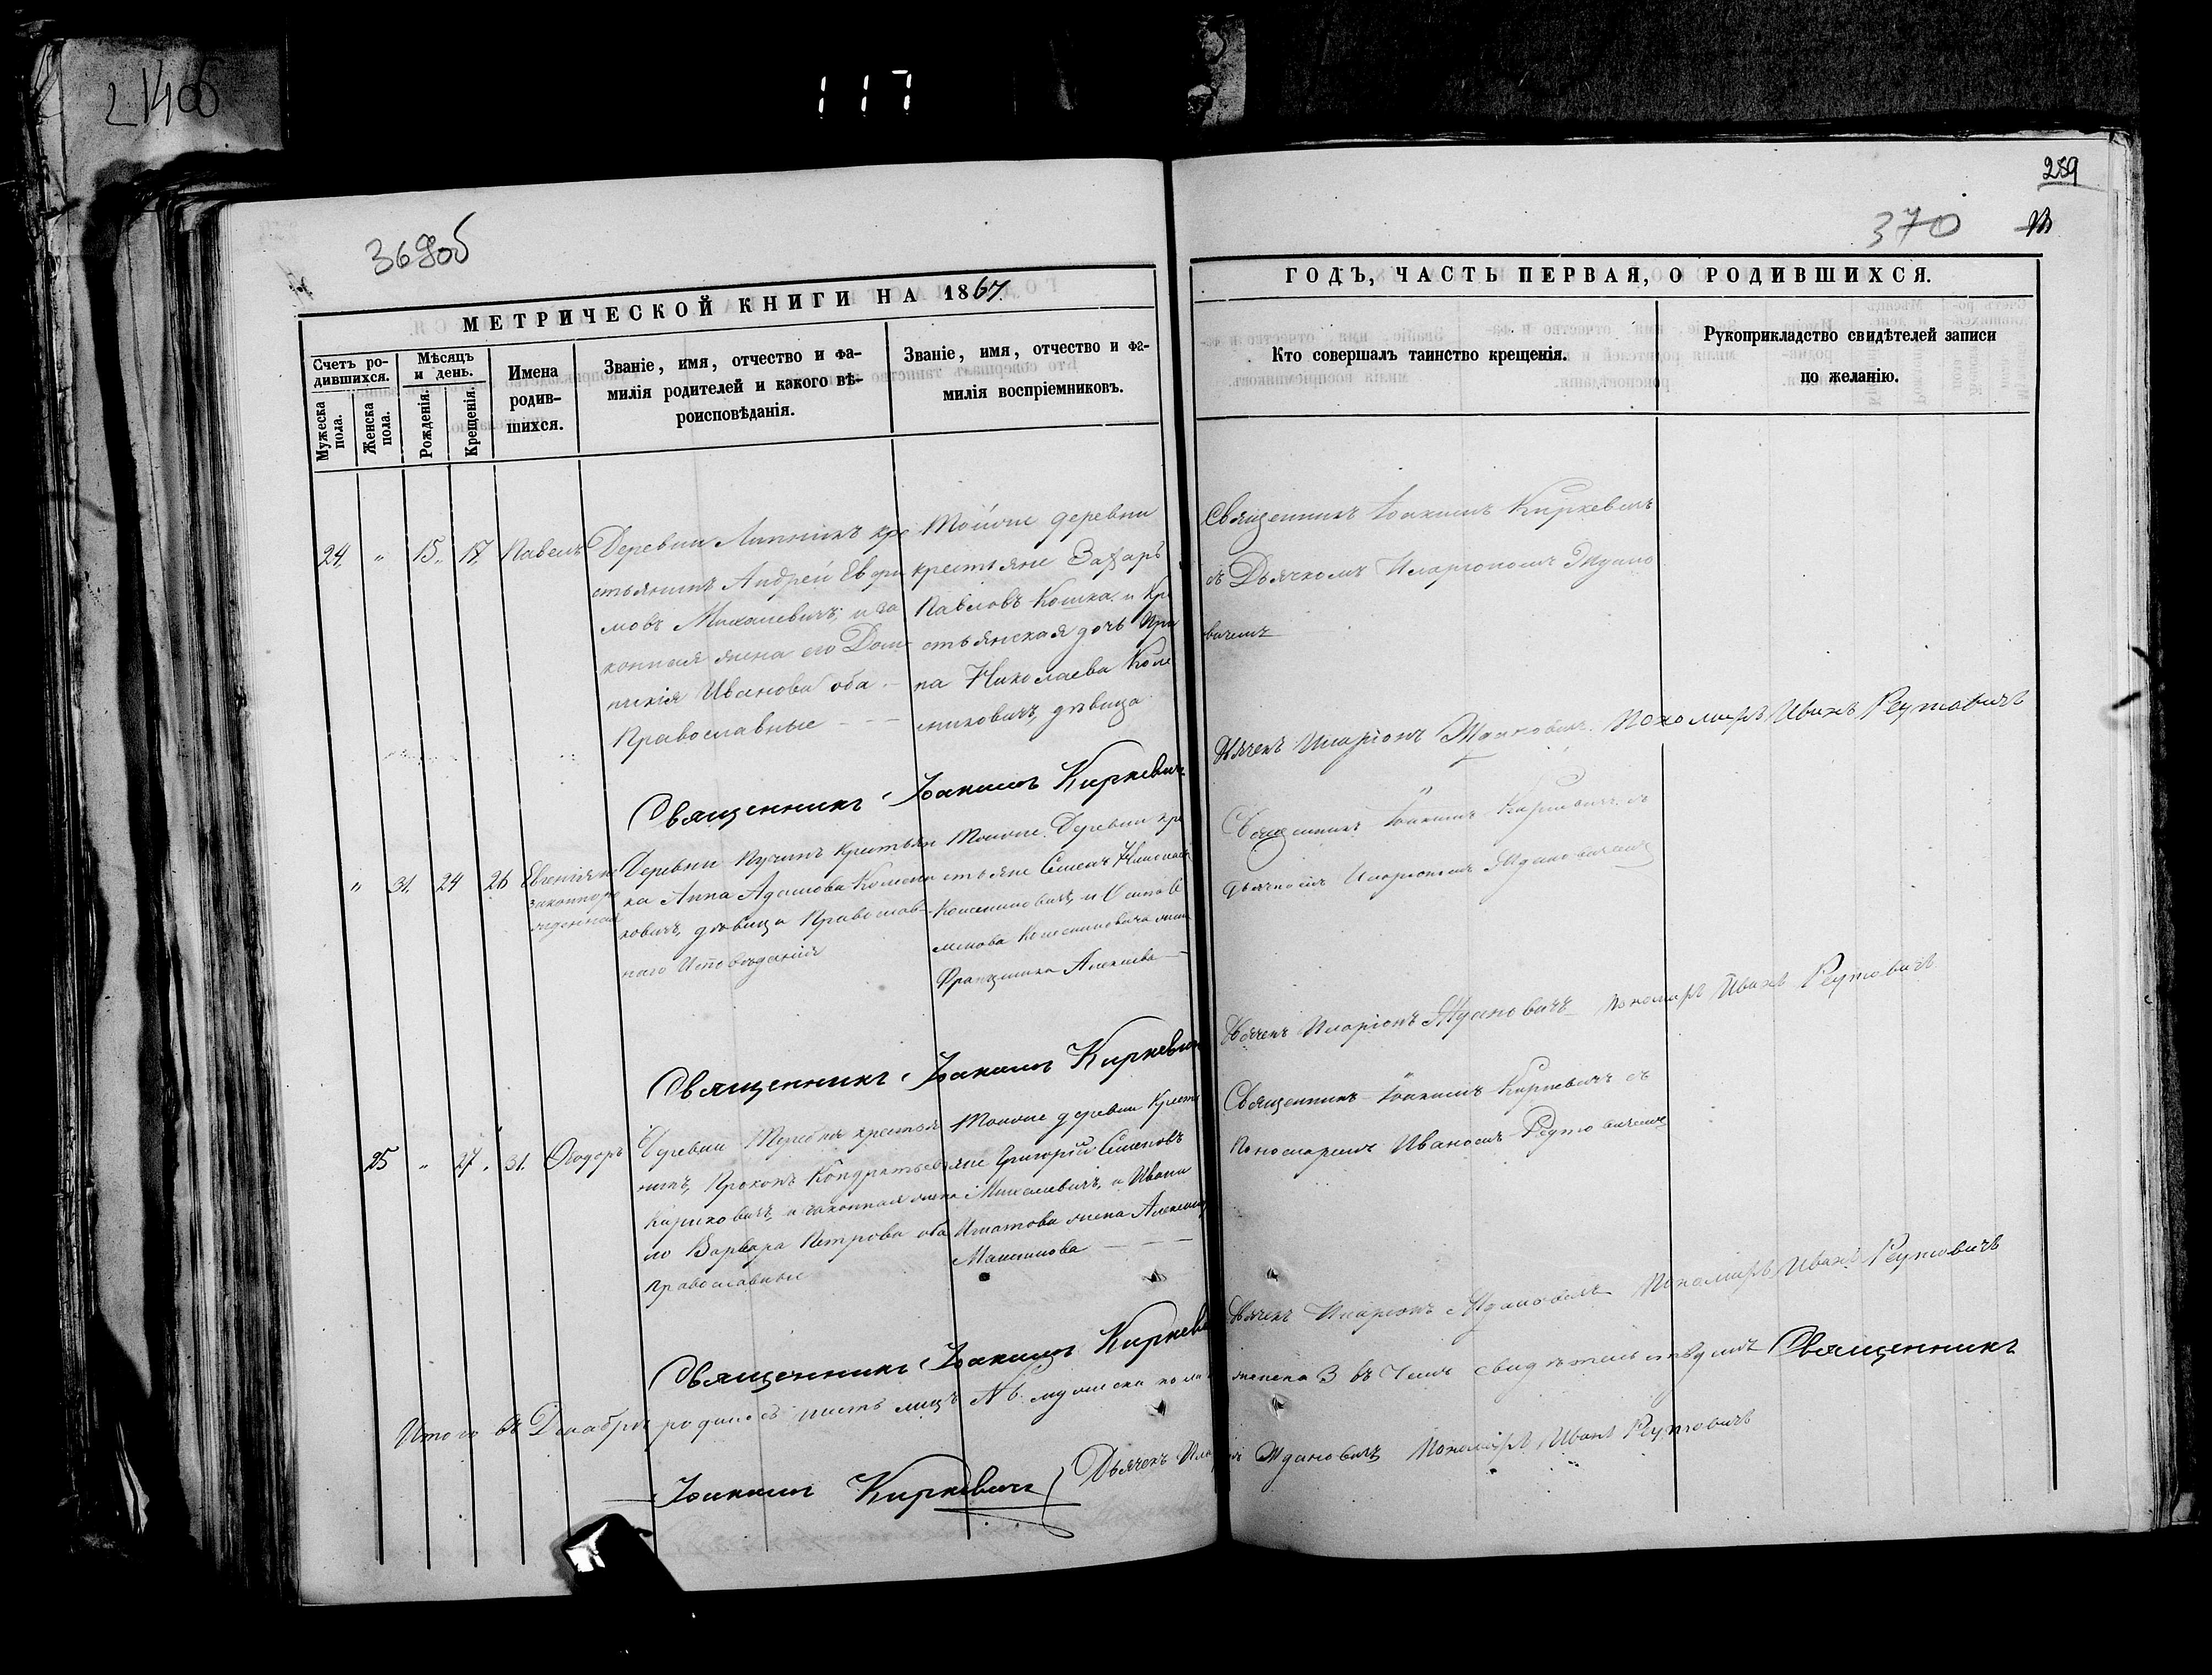 214об
117
369об
289
370
МЕТРИЧЕСКОЙ КНИГИ НА 1867
ГОДЪ, ЧАСТЬ ПЕРВАЯ, О РОДИВШИХСЯ.
Счетъ ро-
дившихся.
Мужеска
пола.
Женска
пола.
Мѣсяцъ
и день.
Рожденія.
Крещенія.
Имена
родив-
шихся.
Званіе, имя, отчество и фа-
милія родителей и какого вѣ-
роисповѣданія.
Званіе, имя, отчество и фа-
милія воспріемниковъ.
Кто совершалъ таинство крещенія.
Рукоприкладство свидѣтелей записи
по желанію.
24. " 15. 17. Павелъ
Деревни Липникъ кре
стьянинъ Андрей Ефри
мовъ Михалевичъ, и за
конная жена его Дом
никія Иванова оба
Православные
Тойже деревни
крестьяне Захаръ
Павловъ Кошка и Кре
стьянская дочь Ири
на Николаева Коле
сниковичъ, дѣвица
Священникъ Іоакимъ Киркевичъ
съ Дьячкомъ Иларіономъ Ждано
вичемъ
Священникъ Іоакимъ Киркевичъ
Дьячекъ Иларіонъ Ждановичъ Пономарь Иванъ Реутовичъ
" 31. 24 26 Евгенія не
законноро
жденная
Деревни Пучинъ Крестьян
ка Анна Адамова Колесни
ковичъ, дѣвица Православ-
наго Исповѣданія
Тойже Деревни кре
стьяне Семенъ Николаевъ
Колесниковичъ, и
Колесниковича жена
Францишка Алексѣева
Священникъ Іоакимъ Киркевичъ съ
дьячкомъ Иларіономъ Ждановичемъ
Священникъ Іоакимъ Киркевичъ
Дьячекъ Иларіонъ Ждановичъ Пономарь Иванъ Реутовичъ
25 " 27. 31. Ѳеодоръ
Деревни Теребличи крестья
нинъ, Прокопъ Кондратьевъ
Кириковичъ, и законная жена
его Варвара Петрова оба
православные
Тойже деревни Крестья
яне Григорій Семеновъ
Михалевичъ, и Ивана
Игнатова жена Александра
Максимова
Священникъ Іоакимъ Киркевичъ съ
Пономаремъ Иваномъ Реутовичемъ
Священникъ Іоакимъ Киркевичъ
Дьячекъ Иларіонъ Ждановичъ Пономарь Иванъ Реутовичъ
Итого въ Декабрѣ родилось шесть лицъ мужеска пола женска 3 въ чемъ свидѣтельствуемъ Священникъ
Іоакимъ Киркевичъ Дьячекъ Иларіонъ Ждановичъ Пономарь Иванъ Реутовичъ